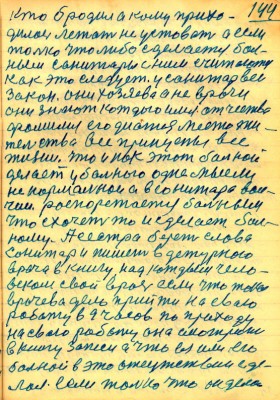 144
Кто бродил а кому прихо-
дилос лежат не устоват а если
толко что либо сделает у бол-
ных санитары с ними считают
как это следует. у санитар все
закон. они хозяева не врачи
они знают каждого имя отчества
фамилия его диагноз место жи-
телства все принцепы все
жизни, что и как этот болной
делает у болного одна мысель
не нормальной а в санитара вои-
чии. роспоретается болным
что схочет то и сделает бол-
ному. А сестра берет слова
санитар и пишет в дежурного
врача в книгу над каждым чело-
веком свой врач если что то
врачева дело прийти на свою
работу в 9 часов по приходу
на свою работу она смотрит
в книгу записи а что ей или его
болной в это отсуствии сде-
лал. если только что он дела